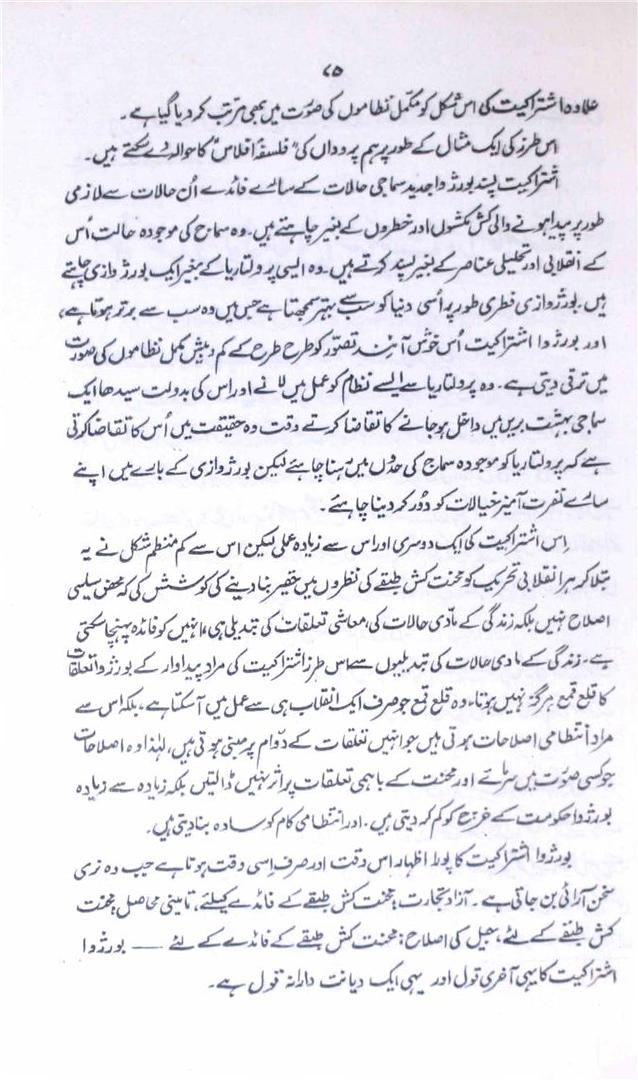 ۷۵
علاوہ اشتراکیت کی اس شکل کو مکمل نظاموں کی صورت میں بھی مرتب کر دیا گیا ہے۔
اس طرز کی ایک مثال کے طور پر ہم پرودواں کی "فلسفۂ افلاس" کا حوالہ دے سکتے ہیں۔
اشتراکیت پسند بورژوا جدید سماجی حالات کے سارے فائدے اُن حالات سے لازمی
طور پر پیدا ہونے والی کش مکشوں اور خطروں کے بغیر چاہتے ہیں۔ وہ سماج کی موجودہ حالت اُس
کے انقلابی اور تحلیلی عناصر کے بغیر پسند کرتے ہیں۔ وہ ایسی پرولتاریا کے بغیر ایک بورژوازی چاہتے
ہیں۔ بورژوازی فطری طور پر اُسی دنیا کو سب سے بہتر سمجھتا ہے جس میں وہ سب سے برتر ہوتا ہے،
اور بورژوا اشتراکیت اُس خوش آئند تصوّر کو طرح طرح کے کم و بیش مکمل نظاموں کی صورت
میں ترقی دیتی ہے۔ وہ پرولتاریا سے ایسے نظام کو عمل میں لانے اور اس کی بدولت سیدھا ایک
سماجی بہشت بریں میں داخل ہو جانے کا تقاضا کرتے وقت وہ حقیقت میں اُس کا تقاضا کرتی
ہے کہ پرولتاریا کو موجودہ سماج کی حدوں میں رہنا چاہئے لیکن بورژوازی کے بارے میں اپنے
سارے نفرت آمیز خیالات کو دُور کر دینا چاہئے۔
اِس اشتراکیت کی ایک دوسری اور اس سے زیادہ عملی لیکن اس سے کم منظم شکل نے یہ
بتلا کر ہر انقلابی تحریک کو محنت کش طبقے کی نظروں میں حقیر بنا دینے کی کوشش کی کہ محض سیاسی
اصلاح نہیں بلکہ زندگی کے مادّی حالات کی، معاشی تعلقات کی تبدیلی ہی، انہیں کو فائدہ پہنچا سکتی
ہے۔ زندگی کے مادی حالات کی تبدیلیوں سے اس طرز اشتراکیت کی مراد پیداوار کے بورژوا تعلقات
کا قلع قمع ہرگز نہیں ہوتا، وہ قلع قمع جو صرف ایک انقلاب ہی سے عمل میں آ سکتا ہے، بلکہ اس سے
مراد انتظامی اصلاحات ہوتی ہیں جو انہیں تعلقات کے دوام پر مبنی ہوتی ہیں، لہٰذا وہ اصلاحات
جو کسی صورت میں سرمائے اور محنت کے باہمی تعلقات پر اثر نہیں ڈالتیں بلکہ زیادہ سے زیادہ
بورژوا حکومت کے خرچ کو کم کر دیتی ہیں۔ اور انتظامی کام کو سادہ بنا دیتی ہیں۔
بورژوا اشتراکیت کا پورا اظہار اس وقت اور صرف اِسی وقت ہوتا ہے جب وہ نری
سخن آرائی بن جاتی ہے۔ آزاد تجارت: محنت کش طبقے کے فائدے کیلئے، تامینی محاصل: محنت
کش طبقے کے لئے، جیل کی اصلاح: محنت کش طبقے کے فائدے کے لئے —— بورژوا
اشتراکیت کا یہی آخری قول اور یہی ایک دیانت دارانہ قول ہے۔